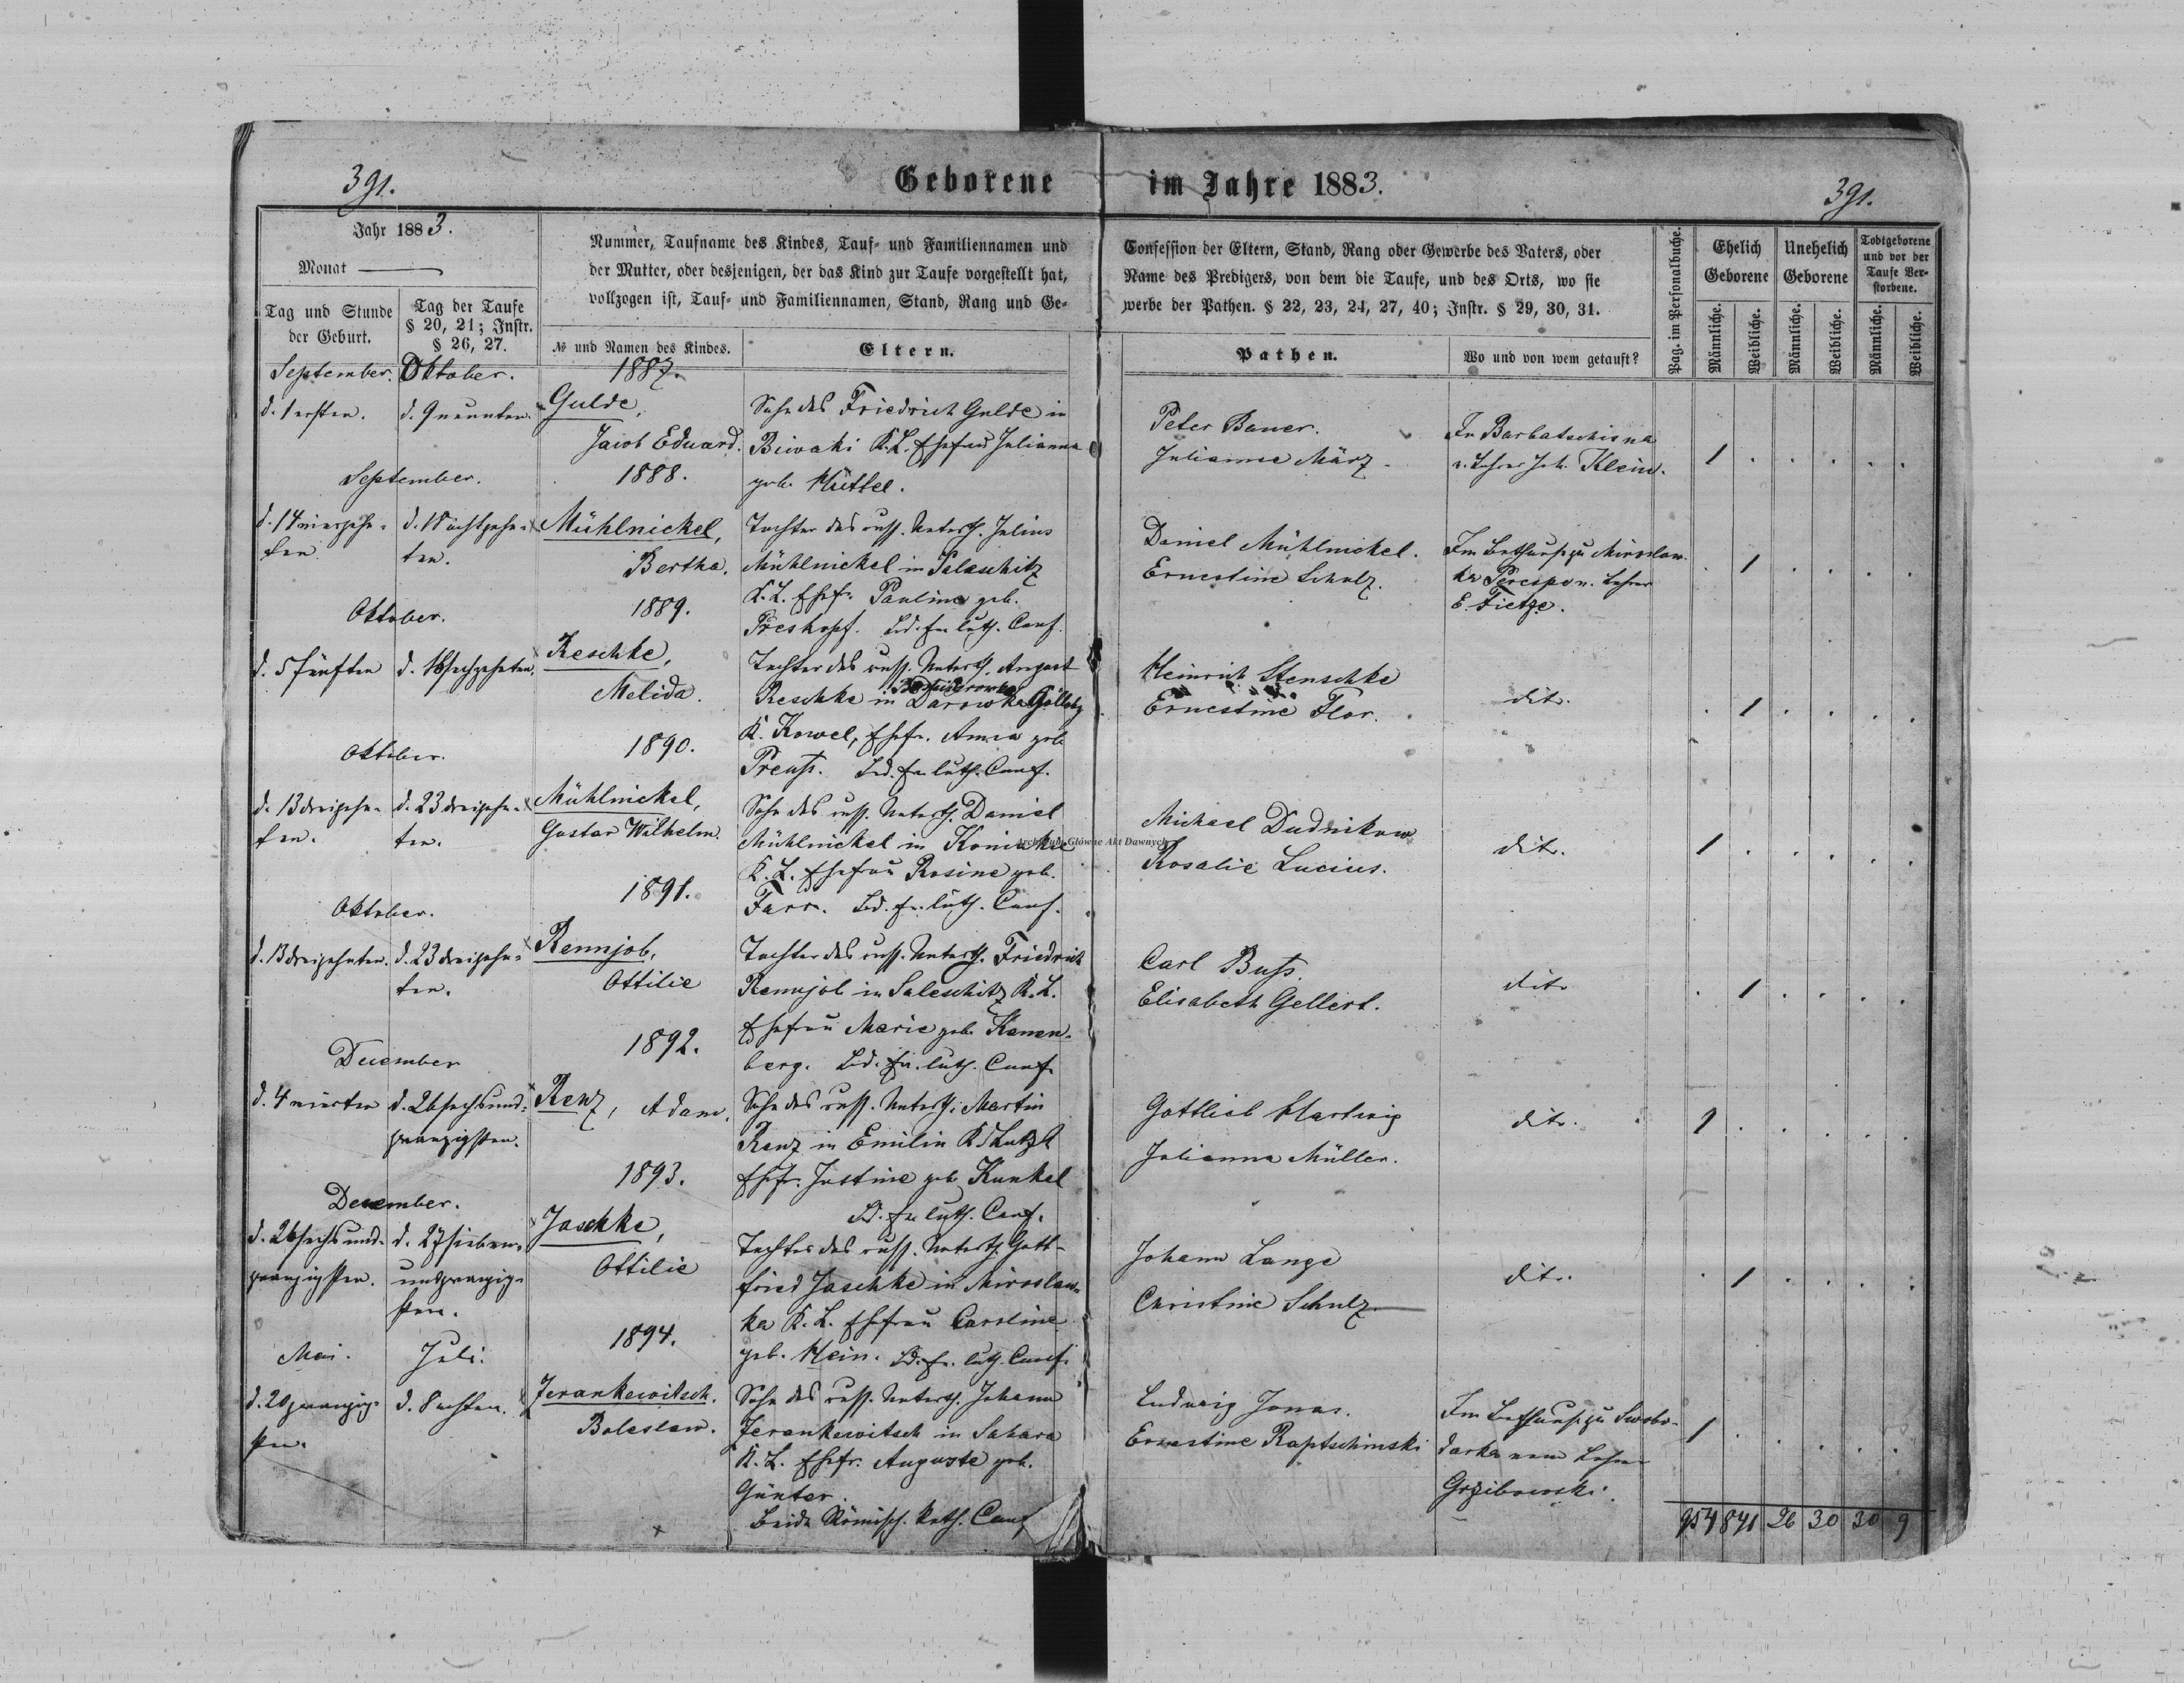 391.
Geborene im Jahre 1883.
391.
Jahr 1883.
Monat
Tag und Stunde der Geburt.
Tag der Taufe § 20, 21; Instr. § 26, 27.
Nummer, Taufname des Kindes, Tauf- und Familiennamen und
der Mutter, oder desjenigen, der das Kind zur Taufe vorgestellt hat,
vollzogen ist, Tauf- und Familiennamen, Stand, Rang und Ge-
№ und Namen des Kindes.
Eltern.
Confession der Eltern, Stand, Rang oder Gewerbe des Vaters, oder
Name des Predigers, von dem die Taufe, und des Orts, wo sie
werbe der Pathen. § 22, 23, 24, 27, 40; Instr. § 29, 30, 31.
Pathen.
Wo und von wem getauft?
Pag. im Personalbuche.
Ehelich Geborene
Unehelich Geborene
Todtgeborene und vor der Taufe Ver-storbene.
Männliche.
Weibliche.
Männliche.
Weibliche.
Männliche.
Weibliche.
September. Oktober.
1887.
d. 1 ersten.
d. 9 neunten.
Gulde,
Jacob Eduard.
Sohn des Friedrich Gulde in
Biwaki K. L. Ehefrau Julianna
geb. Hüttel.
Peter Bauer.
Julianne März.
In Barbatschisna
v. Lehrer Joh. Klein.
1
September.
1888.
d. 14 vierzehn-
ten.
d. 18 achtzehn-
ten.
Mühlnickel,
Bertha.
Tochter des russ. Unterth. Julius
Mühlnickel in Saleschitz
K. L. Ehefr. Pauline geb.
Preskopf. Bd. ev. luth. Conf.
Daniel Mühlnickel.
Ernestine Schulz.
Im Bethause zu Miroslaw-
ka Perespo v. Lehrer
E. Tietze.
1
Oktober.
1889.
d. 5 fünften
d. 16 sechzehnten.
Reschke,
Melida.
Tochter des russ. Unterth. August
Reschke in Darowka
K. Kowel, Ehefr. Anna geb.
Preuss. Bd. ev. luth. Conf.
Heinrich Stenschke
Ernestine Flor.
dito.
1
Oktober.
1890.
d. 13 dreizehn-
ten.
d. 23 dreizehn-
ten.
Mühlnickel,
Gustav Wilhelm.
Sohn des russ. Unterth. Daniel
Mühlnickel in
K. L. Ehefrau Rosine geb.
Farr. Bd. ev. luth. Conf.
Archiwum Główne Akt Dawnych
Michael Dudnikow
Rosalie Lucius.
dito.
1
Oktober.
1891.
d. 13 dreizehnten.
d. 23 dreizehn-
ten.
Rennjob,
Ottilie
Tochter des russ. Unterth. Friedrich
Rennjob in Saleschitz K. L.
Ehefrau Marie geb. Kanen-
berg. Bd. ev. luth. Conf.
Carl Buss.
Elisabeth Gellert.
dito
1
December
1892.
d. 4 vierten
d. 26 sechsund-
zwanzigsten.
Renz, Adam.
Sohn des russ. Unterth. Martin
Renz in Emilin K. Lutzk
Ehefr. Justine geb. Kunkel
Bd. ev. luth. Conf.
Gottlieb Hartwig
Julianna Müller.
dito.
1
December.
1893.
d. 26 sechsund-
zwanzigsten.
d. 27 sieben-
undzwanzig-
sten.
Jaschke,
Ottilie
Tochter des russ. Unterth. Gott-
fried Jaschke in Miroslaw-
ka K. L. Ehefrau Caroline
geb. Hein. Bd. ev. luth. Conf.
Johann Lange
Christine Schulz
dito.
1
Mai.
Juli.
1894.
d. 20 zwanzig-
sten.
d. 8 achten.
Jerankewitsch.
Boleslaw.
Sohn des russ. Unterth. Johann
Jerankewitsch in Sahara
K. L. Ehefr. Auguste geb.
Günter.
beide Römisch. Kath. Conf.
Ludwig Jonas.
Ernestine Raptschinski
Im Bethause zu Swobo-
darka vom Lehrer
Grzibowski.
1
954 841 26 30 30 9